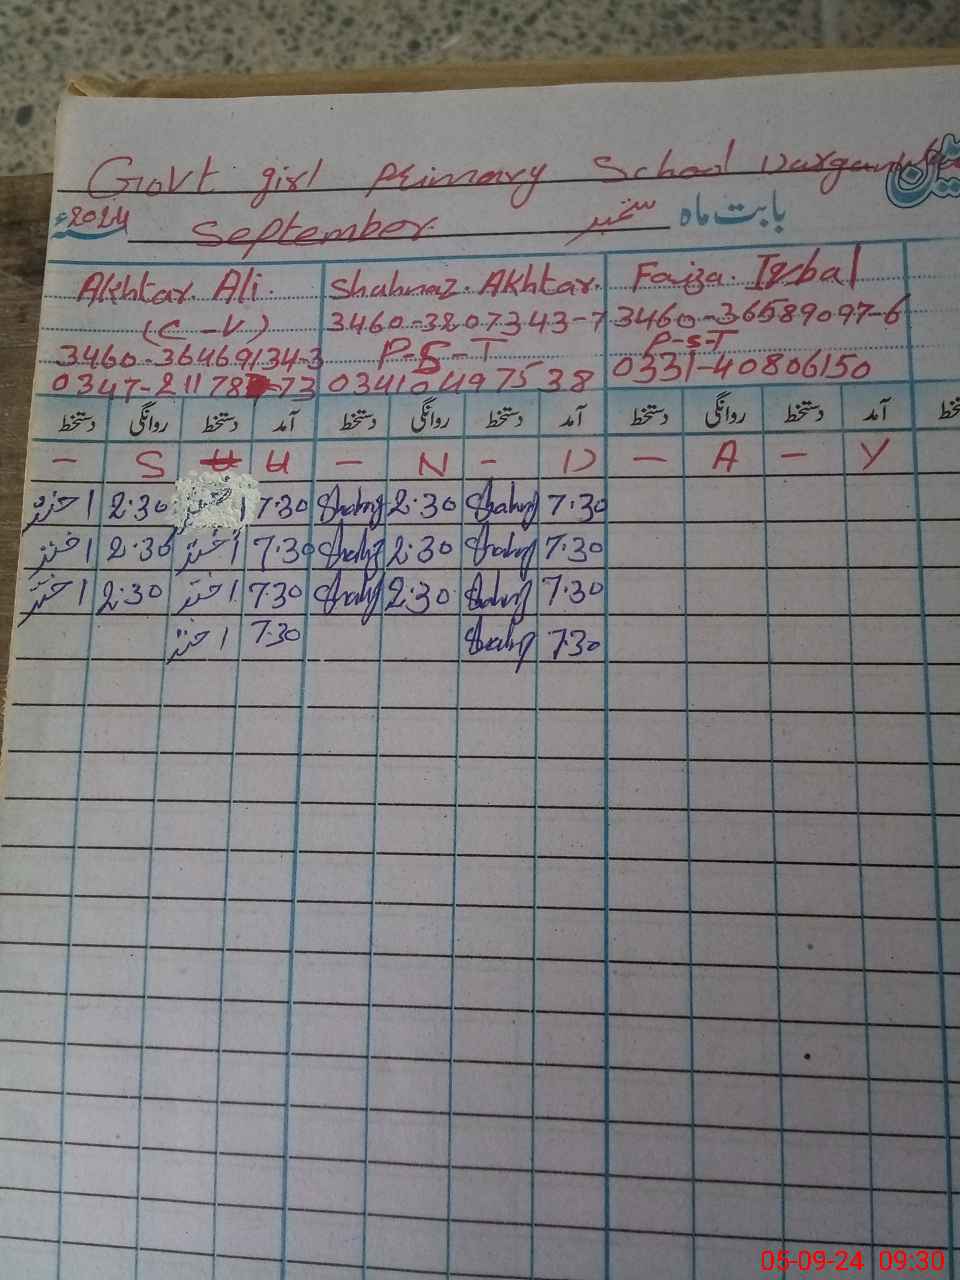 Govt girl Primary School
2024ء September ستمبر بابت ماہ
Akhtar Ali. Shahnaz. Akhtar. Faiza. Iqbal
(C-V) 3460-3207343-7 3460-36589097-6
3460-36469134-3 P-S-T P-S-T
0347-2117873 03410497538 0331-40806150
دستخط روانگی دستخط آمد دستخط روانگی دستخط آمد دستخط روانگی دستخط آمد
- S U - N - D - A - Y
اختر 2:30 7:30 Shahnaz 2:30 Shahnaz 7:30
اختر 2:30 اختر 7:30 Shahnaz 2:30 Shahnaz 7:30
اختر 2:30 اختر 7:30 Shahnaz 2:30 Shahnaz 7:30
اختر 7:30 Shahnaz 7:30
05-09-24 09:30